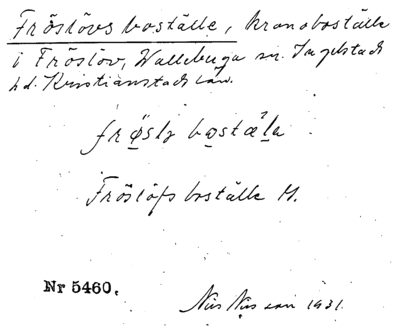 Fröslövs boställe, kronoboställe
i Fröslöv, Valleberga sn. Ingelstads
hd. Kristianstads län.
frøslɡ bostæla
Fröslöfs boställe H.
Nr 5460.
Nils Nilsson 1931.